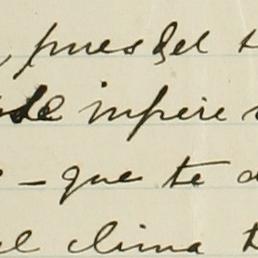 , pues del t
se impere
- que te d
el clima t